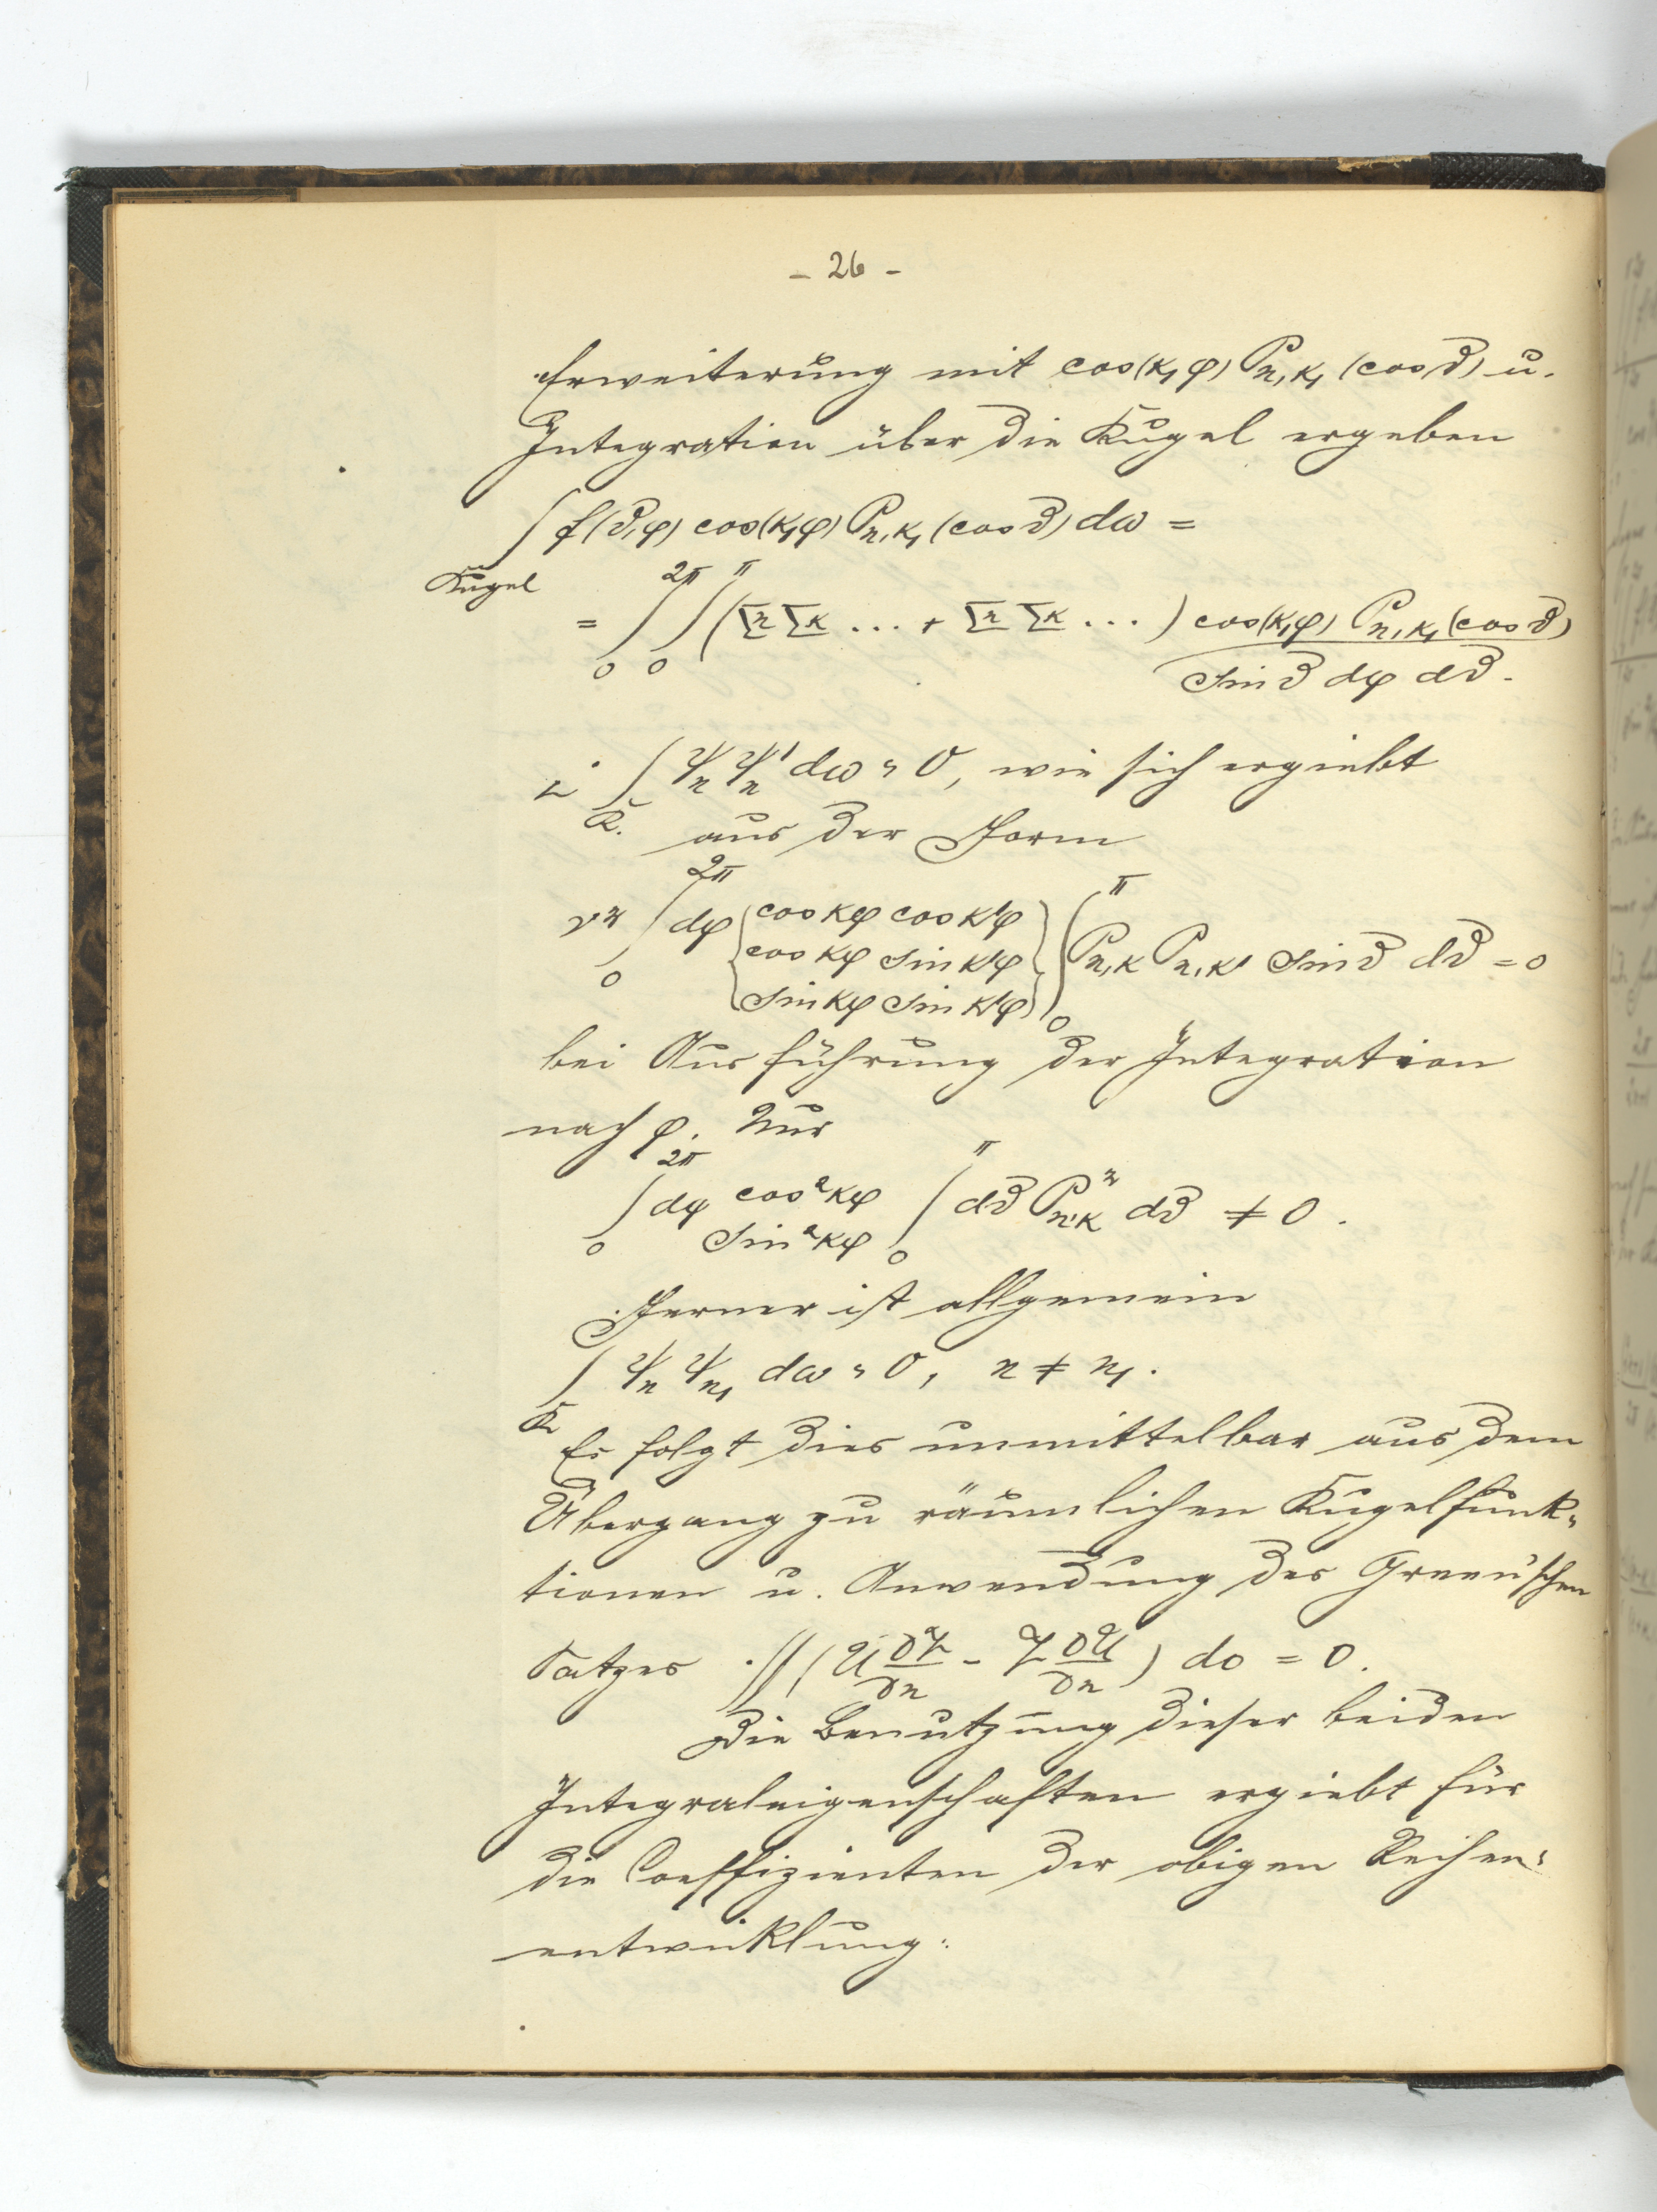 - 26 -
Erweiterung mit cos(k₁φ) Pₙ,ₖ₁ (cos ϑ) u.
Integration über die Kugel ergeben
∫ f(ϑ,φ) cos(k₁φ) Pₙ,ₖ₁ (cos ϑ) dω =
Kugel
= ∫₀^2π ∫₀^π (Σn Σk ... + Σn Σk ...) cos(k₁φ) Pₙ,ₖ₁(cos ϑ)
sin ϑ dφ dϑ.
∫ ψₙ ψₙ' dω = 0, wie sich ergiebt
K. aus der Form
∫₀^2π dφ {cos kφ cos k'φ
cos kφ sin k'φ
sin kφ sin k'φ} ∫₀^π Pₙ,ₖ Pₙ,ₖ' sin ϑ dϑ = 0
bei Ausführung der Integration
nach φ. Nur
∫₀^2π dφ cos²kφ
sin²kφ ∫₀^π dϑ P²ₙ,ₖ dϑ ≠ 0.
Ferner ist allgemein
∫ ψₙ ψₙ₁ dω = 0, n ≠ n₁.
K
Es folgt dies unmittelbar aus dem
Übergang zu räumlichen Kugelfunk-
tionen u. Anwendung des Green'schen
Satzes ∫∫ (U ∂V/∂n - V ∂U/∂n) do = 0.
Die Benutzung dieser beiden
Integraleigenschaften ergiebt für
die Coeffizienten der obigen Reihen-
entwicklung: